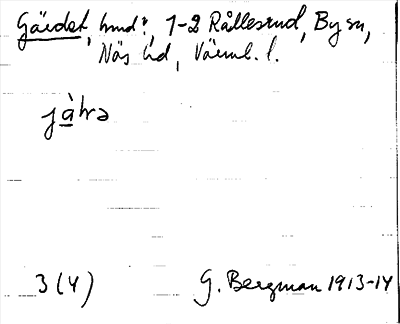 Gärdet, hmd?, 1-2 Rållesrud, By sn,
Näs hd, Värml. l.
jàłrə
3 (4) G. Bergman 1913-14